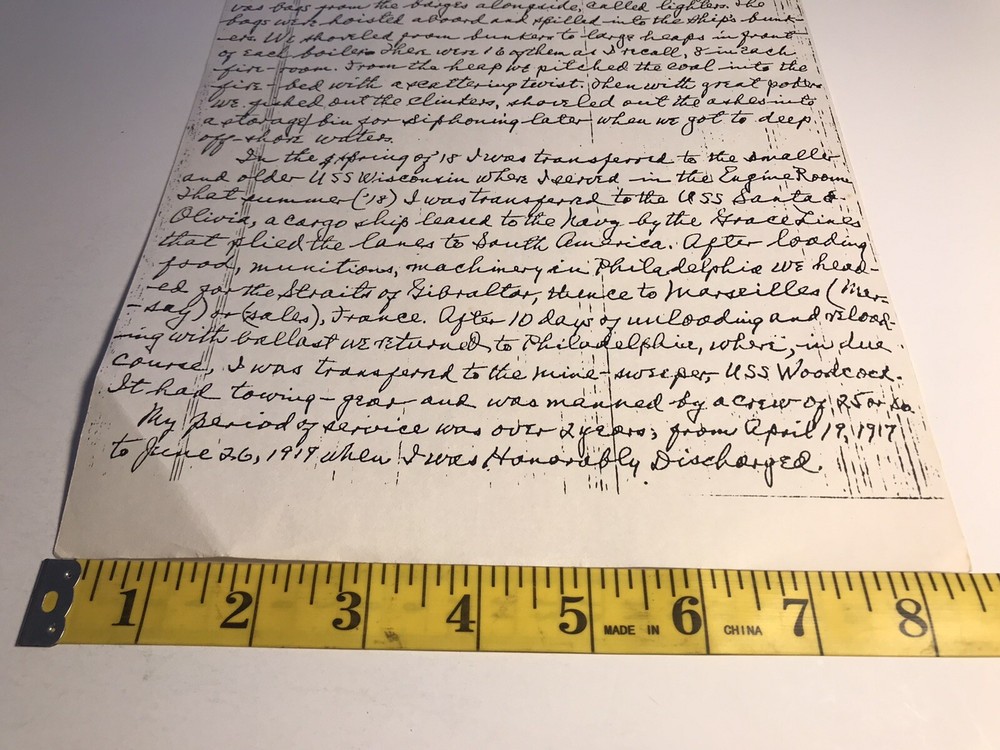 was bags from the barges alongside, called lighters. The
bags were hoisted aboard and spilled into the ship's bunk-
ers. We shoveled from bunkers to large heaps in front
of each boiler. There were 16 of them as I recall, 8 in each
fire-room. From the heap we pitched the coal into the
fire-bed with a scattering twist. Then with great pokers
we fished out the clinkers, shoveled out the ashes into
a storage bin for siphoning later when we got to deep
off-shore waters.
In the spring of '18 I was transferred to the smaller
and older USS Wisconsin where I served in the Engine Room
That summer ('18) I was transferred to the USS Santa
Olivia, a cargo ship leased to the Navy by the Grace Lines
that plied the lanes to South America. After loading
food, munitions, machinery in Philadelphia we head-
ed for the Straits of Gibraltar, thence to Marseilles (Mer-
-say) or (sales), France. After 10 days of unloading and reload-
-ing with ballast we returned to Philadelphia, where, in due
course, I was transferred to the mine-sweeper, USS Woodcock.
It had towing-gear and was manned by a crew of 25 or so
My period of service was over 2 years; from April 19, 1917
to June 26, 1919 when I was Honorably Discharged.
1 2 3 4 5 MADE IN 6 CHINA 7 8